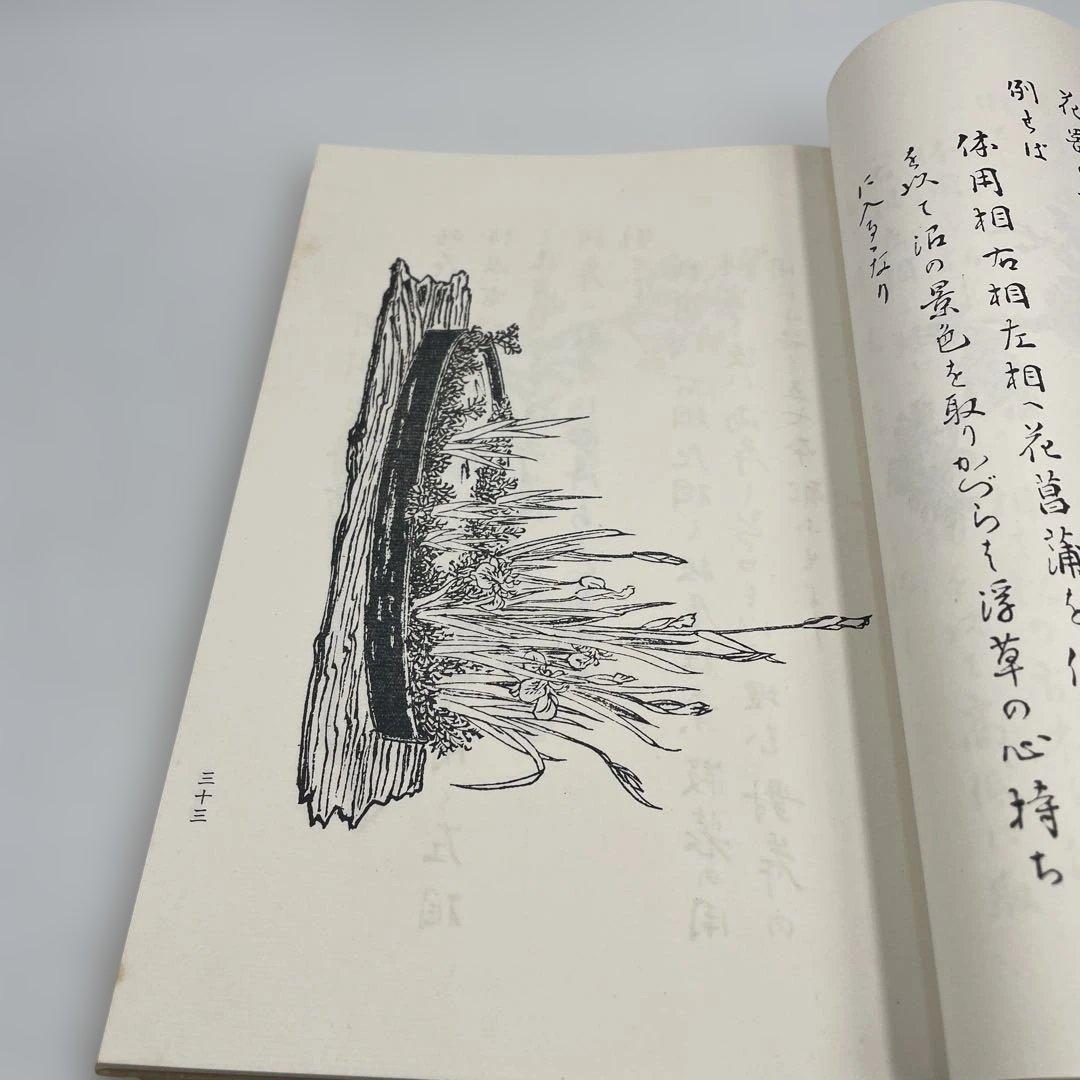 花
例せば
体用相右相左相へ花菖蒲を
を以て沼の景色を取りかづらは浮草の心持ち
に入るゝなり
三十三